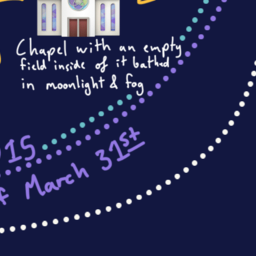 Chapel with an empty
field inside of it bathed
in moonlight & fog
15
of March 31st